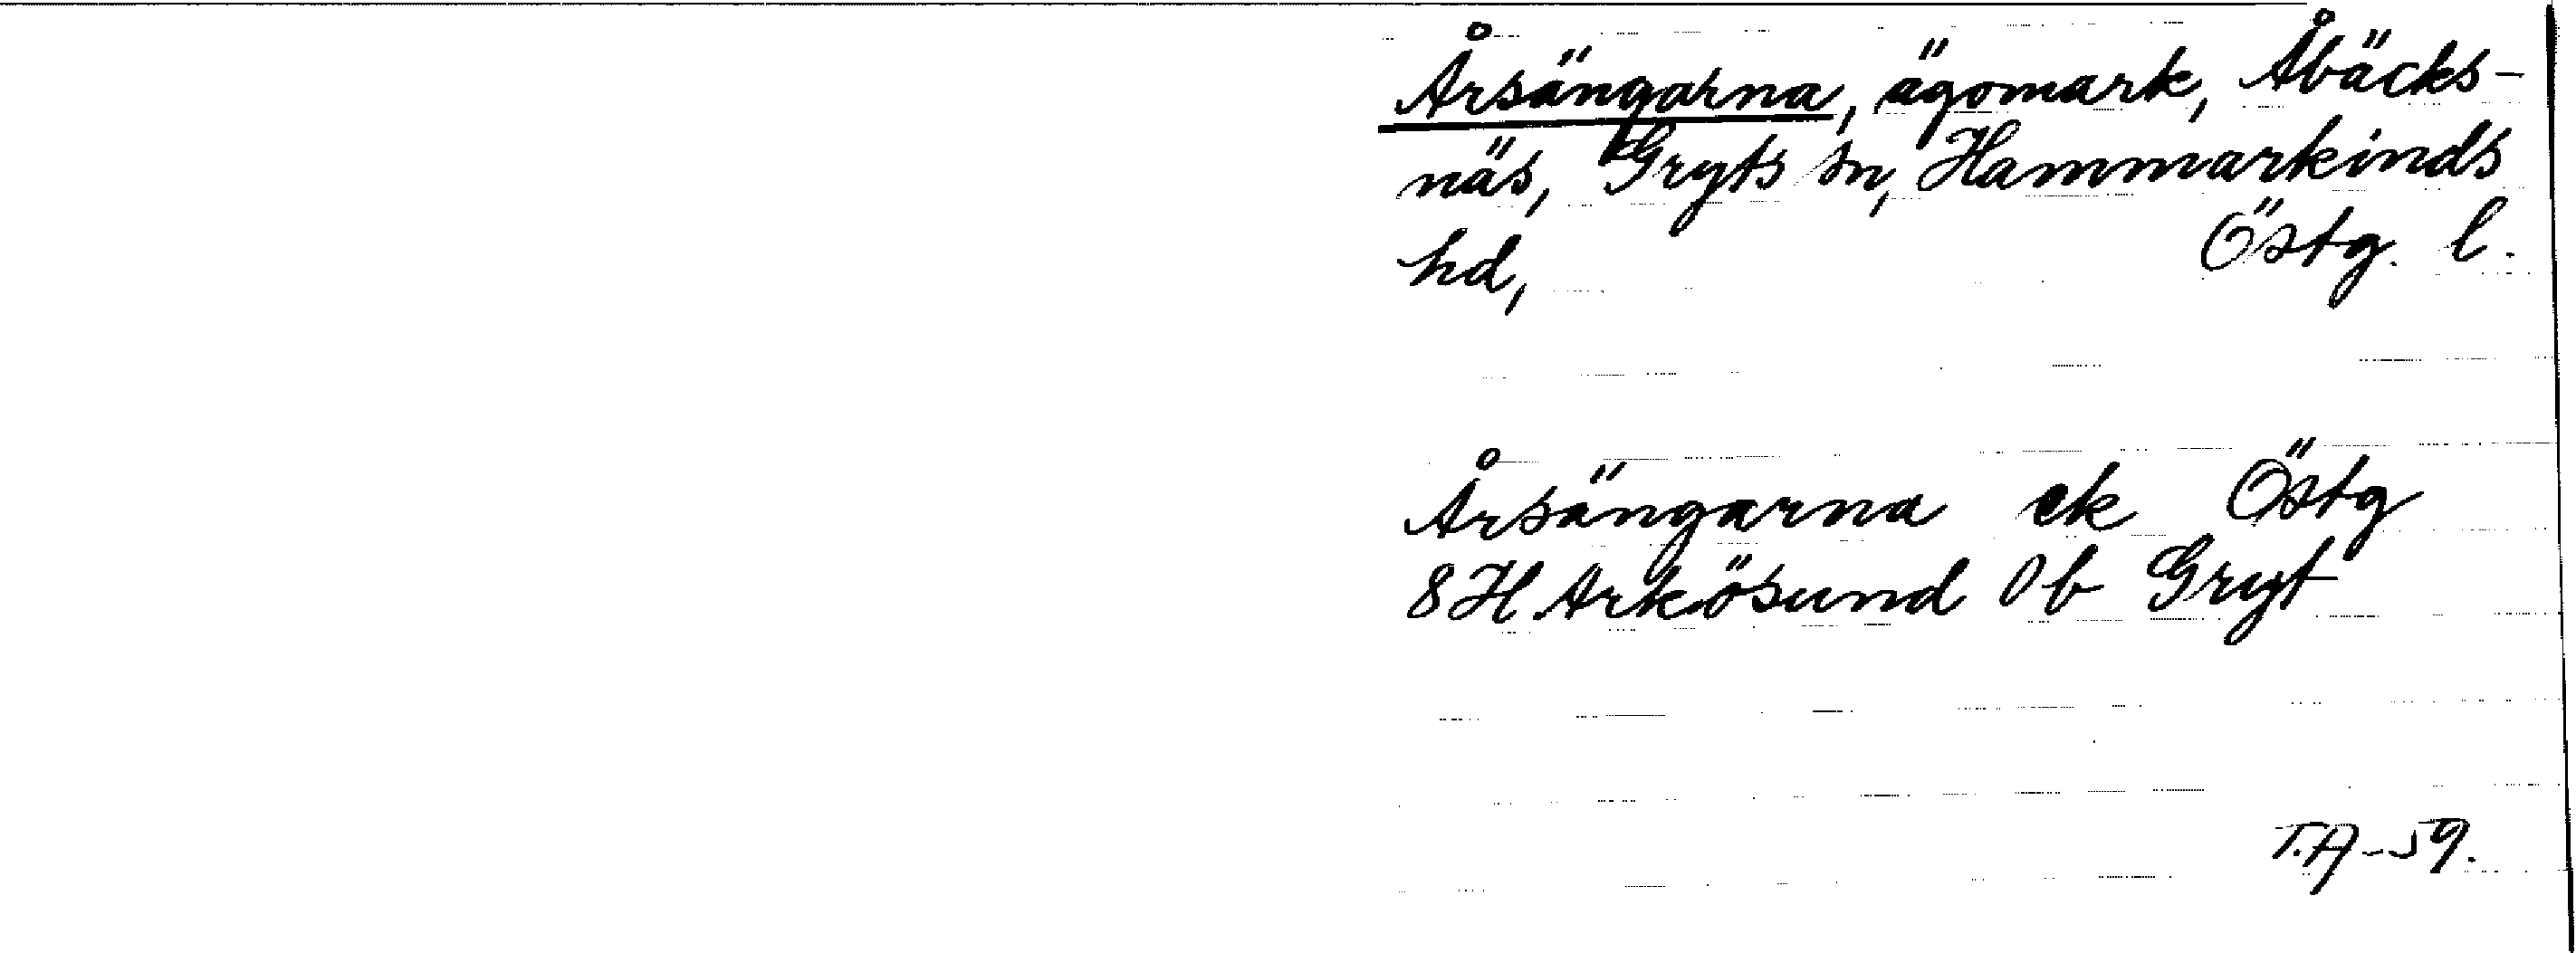 Årsängarna, ägomark, Åbäcks-
näs, Gryts sn, Hammarkinds
hd, Östg. l.
Årsängarna ek Östg
8H Arkösund 0b Gryt
T.A-59.